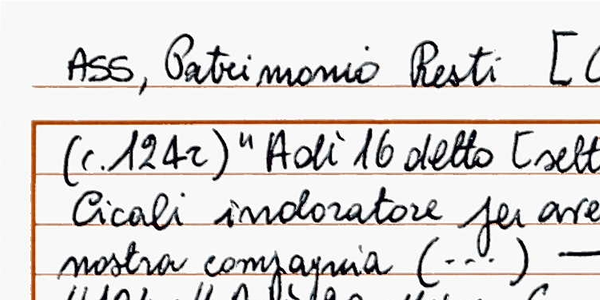 ASS, Patrimonio Resti [
(c.124r) "Adì 16 detto [sett
Cicali indoratore per ave
nostra compagnia (---) —